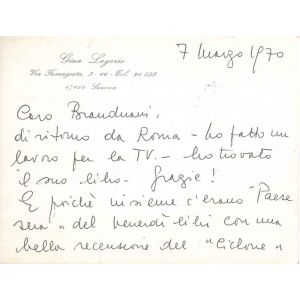 Gina Lagorio
Via Famagosta, 2-10 - Tel. 21 528
17100 Savona
7 marzo 1970
Caro Branduani,
di ritorno da Roma - ho fatto un
lavoro per la TV. - ho trovato
il suo libro. Grazie!
E poiché insieme c'erano "Paese
sera" del venerdì libri con una
bella recensione del "Ciclone"